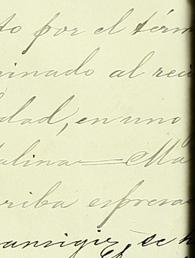 to por el térm
minado al reci
dad, en uno
alina — Ma
riba espresa
ansigir, se h